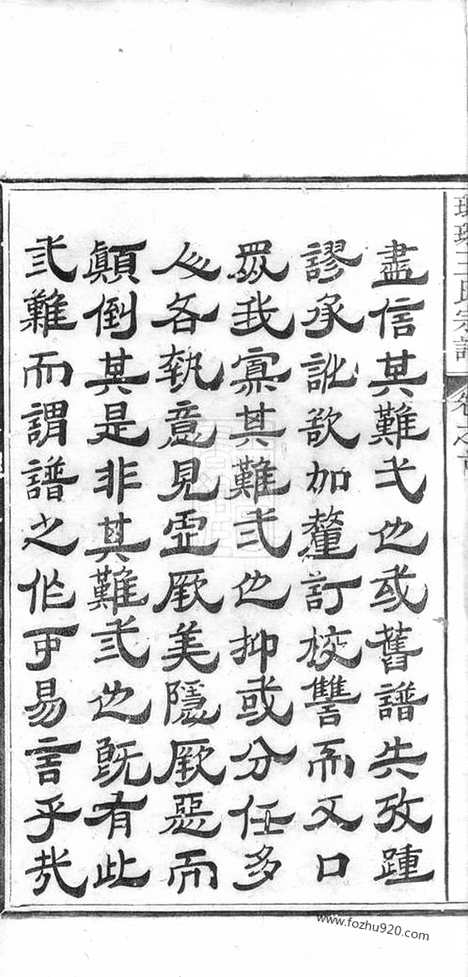 琅琊王氏宗譜 卷之首
盡信其難弌也或舊譜失攷踵
謬承訛欲加釐訂校讐而又口
眾我寡其難弍也抑或分任多
人各執意見虛厥美隱厥惡而
顛倒其是非其難弎也既有此
弎難而謂譜之作可易言乎哉
www.fozhu920.com